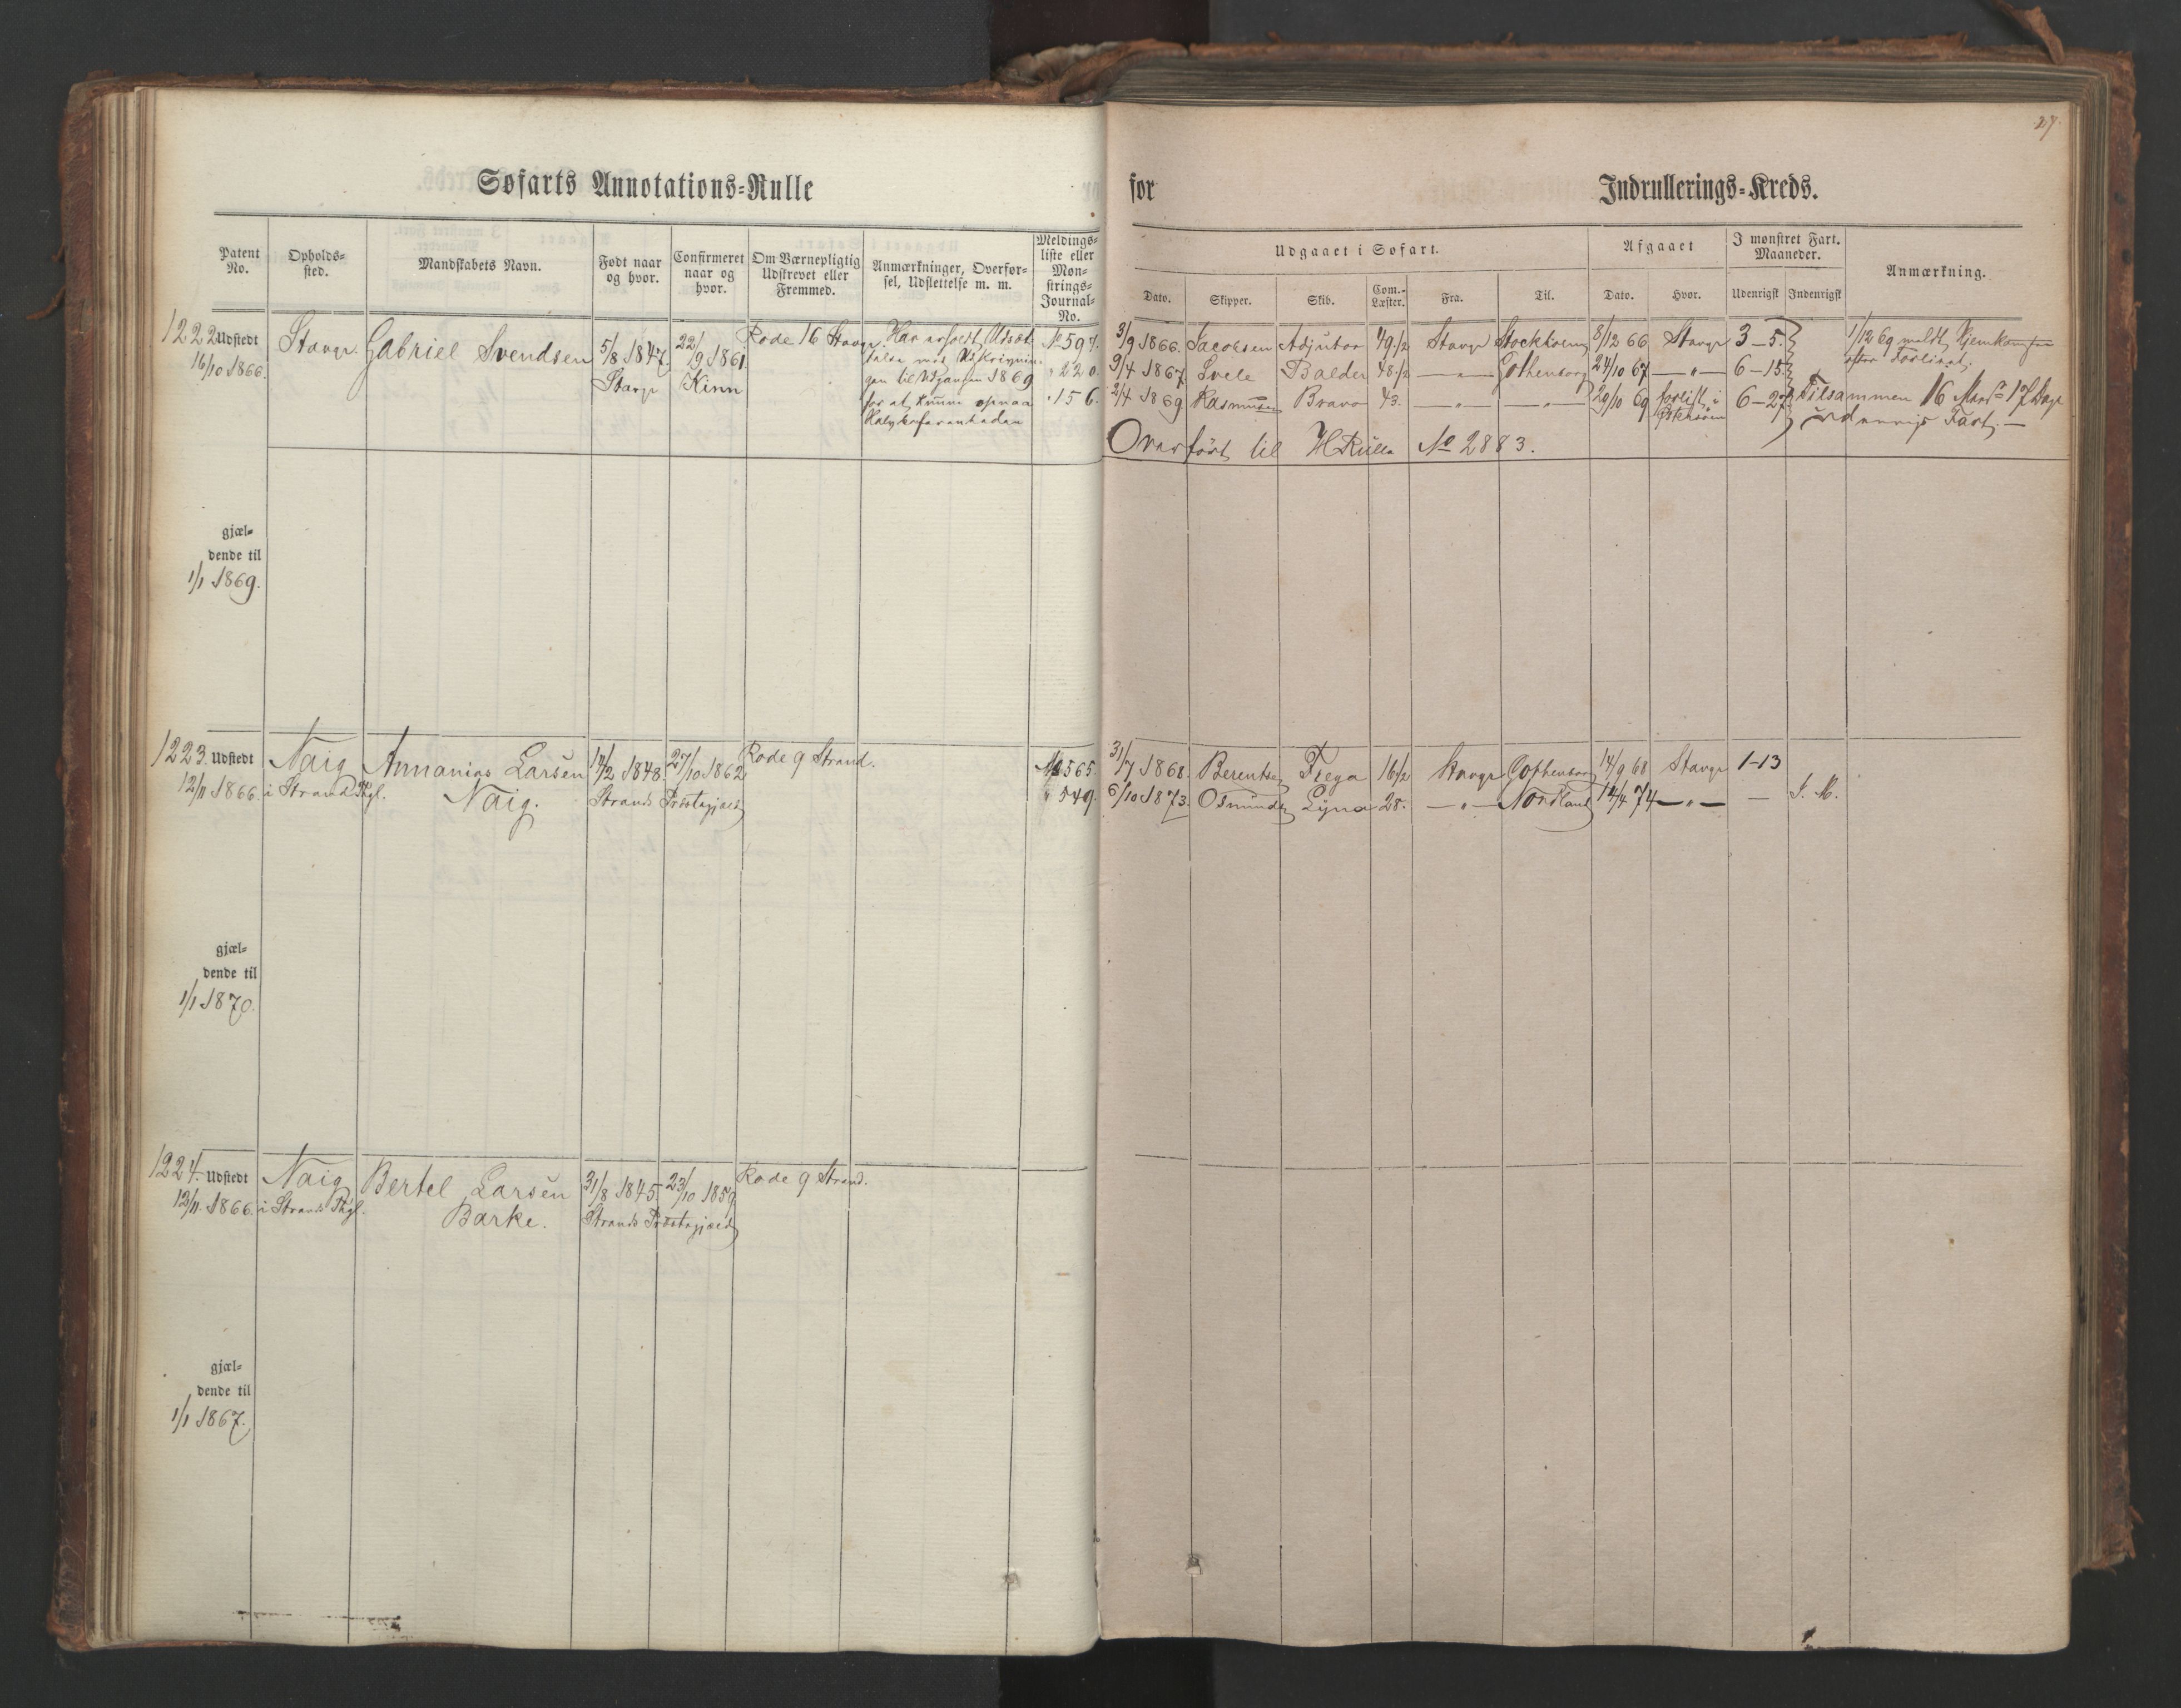 27.
Søfarts Annotations-Rulle
for Indrullerings-Kreds.
Patent No.
Opholds-sted.
Mandskabets Navn.
Født naar og hvor.
Confirmeret naar og hvor.
Om Værnepligtig Udskrevet eller Fremmed.
Anmærkninger, Overfør-sel, Udslettelse m. m.
Meldings-liste eller Møn-strings-Journal-No.
Udgaaet i Søfart.
Afgaaet
I mønstret Fart. Maaneder.
Anmærkning.
Dato.
Skipper.
Skib.
Com.-Læster.
Fra.
Til.
Dato.
Hvor.
Udenrigsk
Indenrigsk
1222 Udstedt
16/10 1866.
Stavgr.
Gabriel Svendsen
5/8 1847
Stavgr
22/9 1861.
Kinn
Rode 16 Stavgr.
Har erholdt Udsæt-
telse med Udskrivnin-
gen til Udgangen 1869
for at kunne opnaa
No 597.
" 220.
" 156.
3/9 1866. Jacobsen Adjutor 49 1/2 Stavgr Stockholm 8/12 66 Stavgr 3-5.
9/4 1867 Svele Balder 48 1/2 — " — Gothenborg 24/10 67 — " — 6-15
2/4 1869 Rasmusen Bravo 43. — " — — " — 29/10 69 forlist i Østersøen 6-27
1/12 69 meldt Hjemkomsten
efter Forliset.
Tilsammen 16 Mdr 17 Dage
udenrigs Fart. —
Overført til H Rulle No 2883.
gjæl-
dende til
1/1 1869.
1223. Udstedt
12/11 1866.
Naig
i Strand Phgl.
Annanias Larsen
Naig.
14/2 1848.
27/10 1862
Strands Præstegjæld
Rode 9 Strand.
No 565.
" 549.
31/7 1868. Berentsen Freya 16 1/2 Stavgr Gothenborg 14/9 68 Stavgr 1-13
6/10 1873. Osmundsen Lyna 28. — " — Nordland 14/4 74 — " — — I. M.
gjæl-
dende til
1/1 1870.
1224. Udstedt
12/11. 1866.
Naig
i Strands Phgl.
Bertel Larsen
Barke.
31/8 1845.
23/10 1859
Strands Præstegjæld
Rode 9 Strand.
gjæl-
dende til
1/1 1867.